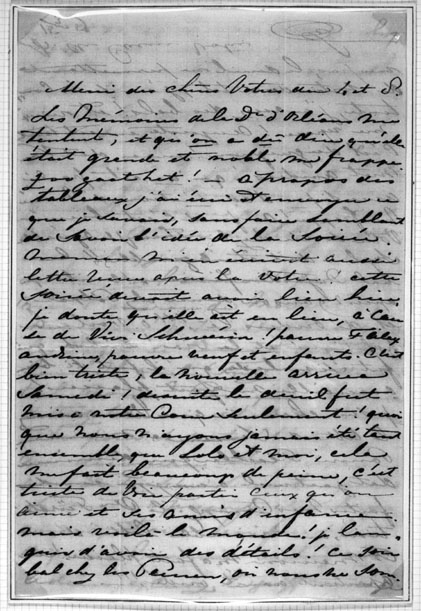 Merci des chères Votres du 4 et 8.
Les Mémoires de la Dsse d'Orléans me
tentent, et qu'on a dû dire qu'elle
était grande et noble me frappe
pas ! à propos des
tableaux j'ai
que je savais, sans faire semblant
de savoir l'idée de la Soirée.
Maman m'en écrivit aussi
lettre venue après la Votre ! cette
Soirée devait avoir lieu hier,
je doute qu'elle ait eu lieu, à cau
se de Schwerin ! pauvre Alex
andrine, pauvre veuf et enfants. C'est
bien triste, la nouvelle arriva
Samedi ! le deuil fut
mis à notre Cour seulement ! quoi
que nous n'ayons jamais été tant
ensemble que Lolo et moi, cela
me fait beaucoup de peine, c'est
triste de voir partir ceux qu'on
aime et ses amis d'enfance
mais voilà le monde ! je lan
guis d'avoir des détails ! Ce soir
bal chez les , où nous ne som